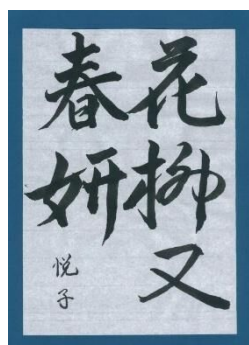 花柳又
春妍
悦子